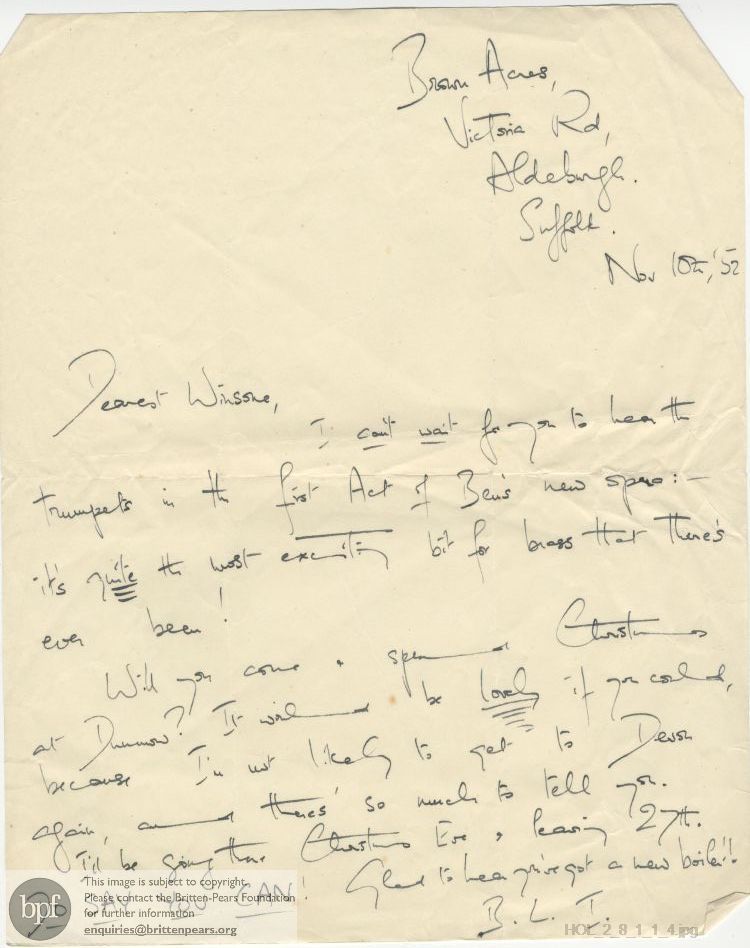 Brown Acres,
Victoria Rd,
Aldeburgh.
Suffolk.
Nov 10th, '52
Dearest Winsome,
I can't wait for you to hear the
trumpets in the first Act of Ben's new opera:–
it's quite the most exciting bit for brass that there's
ever been!
Will you come & spend Christmas
at Dunmow? It would be lovely if you could,
because I'm not likely to get to Devon
again, and there's so much to tell you.
I'll be going there Christmas Eve & leaving 27th.
DO SAY YOU CAN! Glad to hear you've got a new boiler!!
B. L. I.
bpf
This image is subject to copyright.
Please contact the Britten-Pears Foundation
for further information
enquiries@brittenpears.org
HOL_2_8_1_1_4.jpg